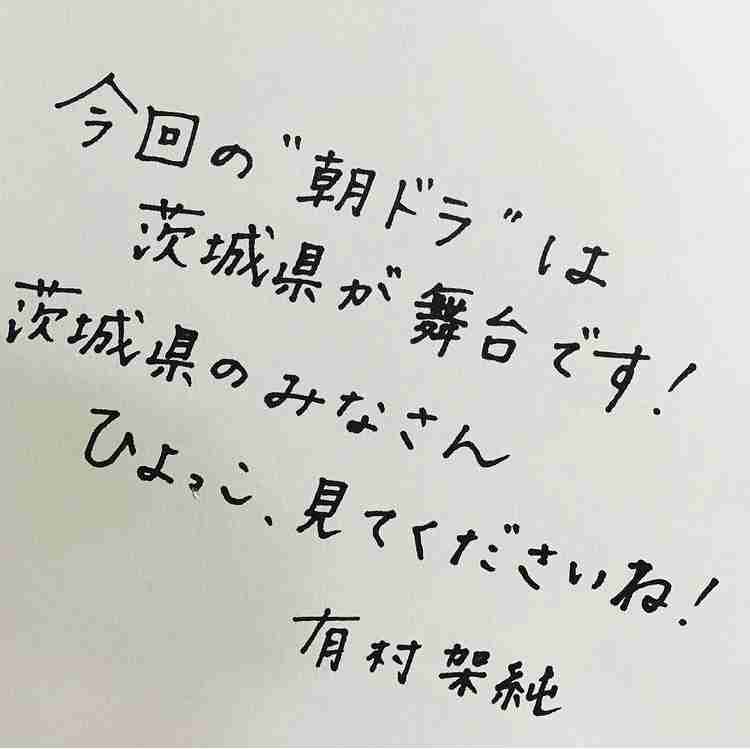 今回の"朝ドラ"は
茨城県が舞台です!
茨城県のみなさん
ひよっこ、見てくださいね!
有村架純